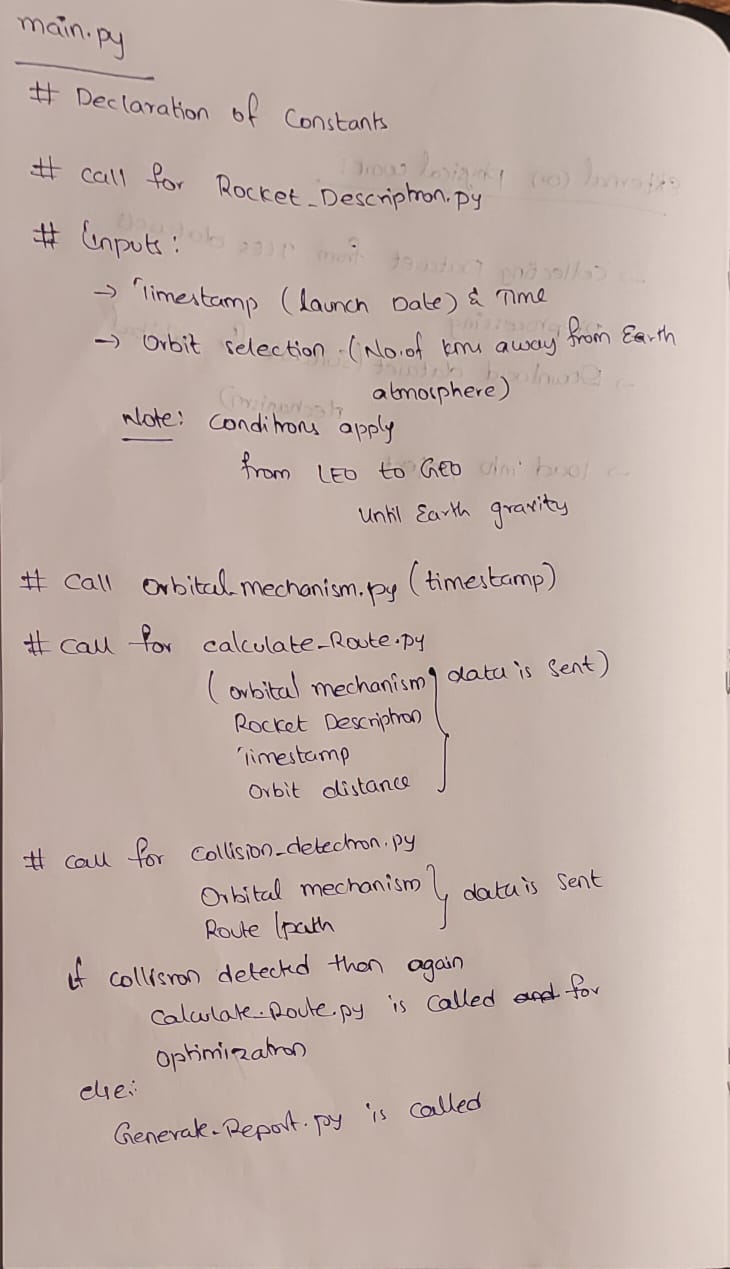 main.py
# Declaration of Constants
# call for Rocket_Description.py
# Inputs:
→ Timestamp (launch Date) & Time
→ Orbit selection (No.of kms away from Earth
atmosphere)
Note: Conditions apply
from LEO to GEO
Until Earth gravity
# call Orbital_mechanism.py (timestamp)
# call for calculate_Route.py
(orbital mechanism } data is sent)
Rocket Description
Timestamp
Orbit distance
# call for collision_detection.py
Orbital mechanism } data is sent
Route/path
if collision detected then again
Calculate_Route.py is called and for
Optimization
else:
Generate_Report.py is called